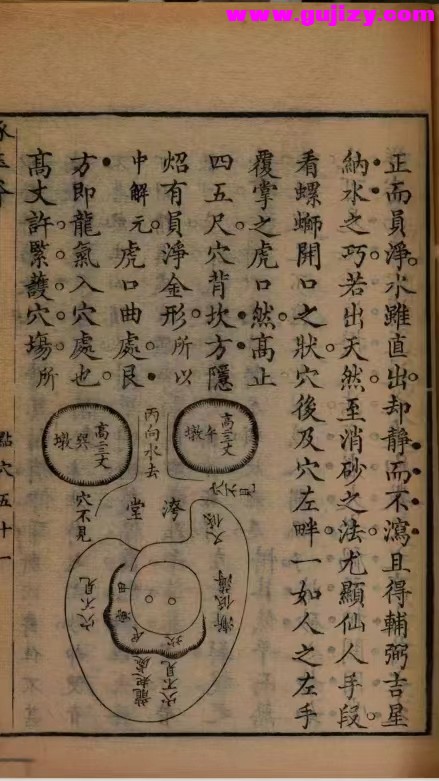 www.gujizy.com
正而員淨水雖直出却靜而不瀉且得輔弼吉星
納水之巧若出天然至消砂之法尤顯仙人手段
看螺螄開口之狀穴後及穴左畔一如人之左手
覆掌之虎口然高止
四五尺穴背坎方隱
炤有員淨金形所以
中解元虎口曲處艮
方即龍氣入穴處也
高丈許緊護穴塲所
高三丈
午墩
丙向水去
高三丈
巽墩
穴不見
堂
漸低薄
穴不見
坎
艮
穴不見
點穴五十一